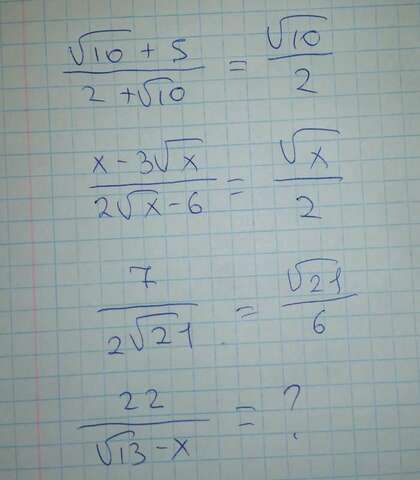 (√10 + 5)/(2 + √10) = √10/2
(x - 3√x)/(2√x - 6) = √x/2
7/(2√21) = √21/6
22/(√13 - x) = ?